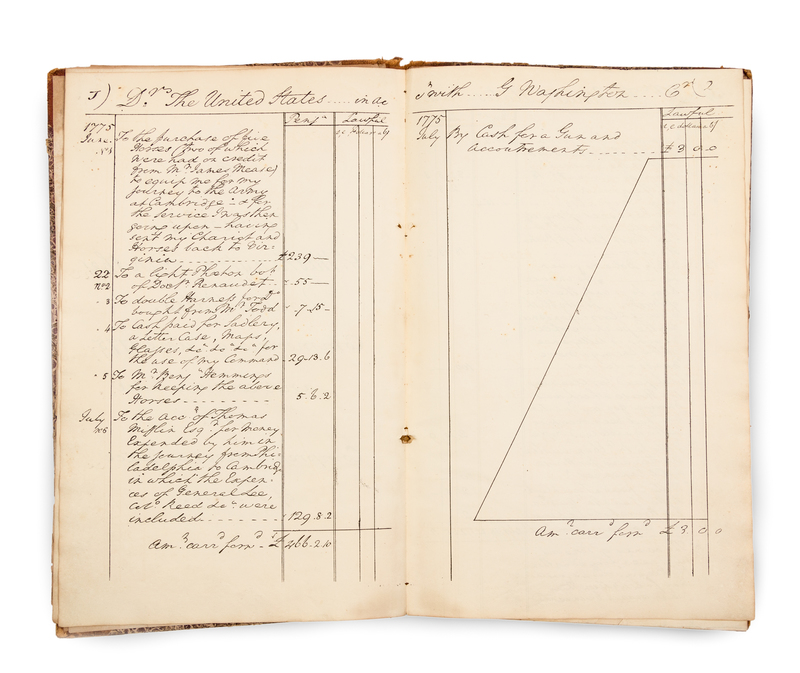 Dr. The United States ...... in ac
Pensa Lawful
1775
June. To the purchase of five
No1 Horses (two of which
were had on credit
from Mr. James Mease)
to equip me for my
journey to the Army
at Cambridge - & for
the Service I was then
going upon - having
sent my Chariot and
Horses back to Vir-
ginia £ 239 —
22 To a light Phaeton bot
No2 of Doctr. Renaudet 55 —
3 To double Harness for Do
bought from Mr. Todd 7.15 —
4 To Cash paid for Sadlery,
a Letter Case, Maps,
Glasses, &ca &ca &ca for
the use of my Command 29.13.6
5 To Mr. Benj Hemmings
for keeping the above
Horses 5.6.2
July To the accd of Thomas
No6 Mifflin Esqr. for Money
Expended by him in
the journey from Phi-
ladelphia to Cambridge
in which the Expen-
ces of General Lee,
Reed &ca. were
included 129.8.2
Amt. carrd. forwd. £ 466.2.10
with ...... G Washington ...... Cr.
Lawful
1775
July By Cash for a Gun and
accoutrements £ 3 0 0
Amt. carrd. forwd. £ 3 0 0